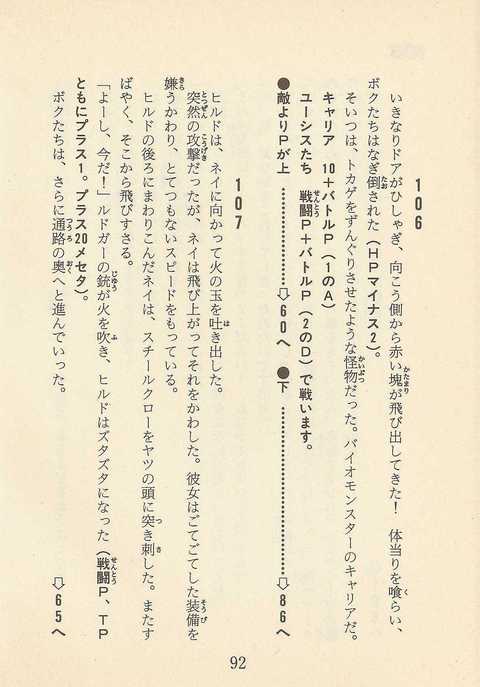 106
いきなりドアがひしゃぎ、向こう側から赤い塊が飛び出してきた！　体当りを喰らい、
ボクたちはなぎ倒された（HPマイナス2）。
そいつは、トカゲをずんぐりさせたような怪物だった。バイオモンスターのキャリアだ。
キャリア　10＋バトルP（1のA）
ユーシスたち　戦闘P＋バトルP（2のD）で戦います。
●敵よりPが上　…………………⇨60へ　●下　…………………⇨86へ
107
ヒルドは、ネイに向かって火の玉を吐き出した。
突然の攻撃だったが、ネイは飛び上がってそれをかわした。彼女はごてごてした装備を
嫌うかわり、とてつもないスピードをもっている。
ヒルドの後ろにまわりこんだネイは、スチールクローをヤツの頭に突き刺した。またす
ばやく、そこから飛びすさる。
「よーし、今だ！」ルドガーの銃が火を吹き、ヒルドはズタズタになった（戦闘P、TP
ともにプラス1。プラス20メセタ）。
ボクたちは、さらに通路の奥へと進んでいった。　⇨65へ
92